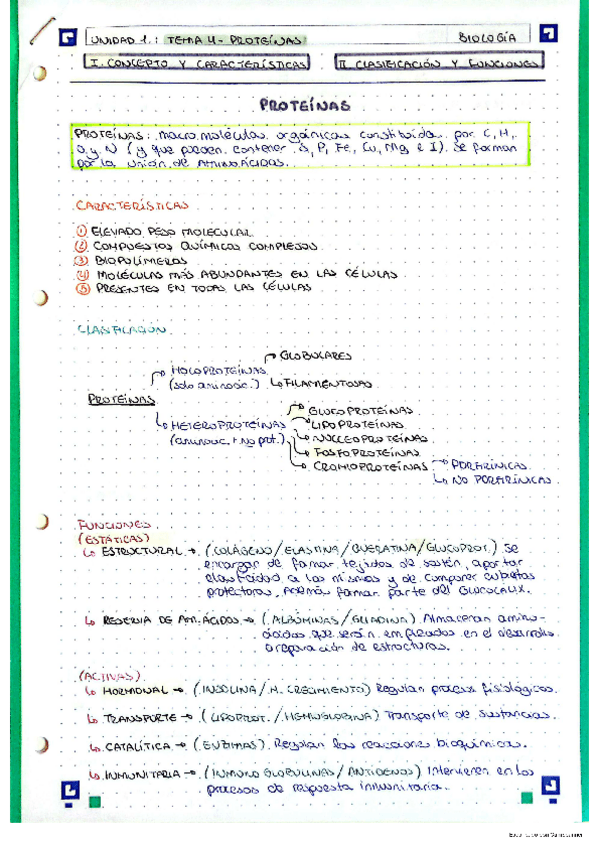 UNIDAD 1.: TEMA 4- PROTEÍNAS BIOLOGÍA
I. CONCEPTO Y CARACTERÍSTICAS II. CLASIFICACIÓN Y FUNCIONES
PROTEÍNAS
PROTEÍNAS: macromoléculas orgánicas constituidas por C, H,
O y N (y que pueden contener S, P, Fe, Cu, Mg e I). Se forman
por la unión de AMINOÁCIDOS.
CARACTERÍSTICAS
① ELEVADO PESO MOLECULAR
② COMPUESTOS QUÍMICOS COMPLEJOS
③ BIOPOLÍMEROS
④ MOLÉCULAS MÁS ABUNDANTES EN LAS CÉLULAS
⑤ PRESENTES EN TODAS LAS CÉLULAS
CLASIFICACIÓN
GLOBULARES
HOLOPROTEÍNAS
(solo aminoác.) FILAMENTOSAS
PROTEÍNAS
GLUCOPROTEÍNAS
HETEROPROTEÍNAS LIPOPROTEÍNAS
(aminoác. + no prot.) NUCLEOPROTEÍNAS
FOSFOPROTEÍNAS
CROMOPROTEÍNAS PORFIRÍNICAS
NO PORFIRÍNICAS
FUNCIONES
(ESTÁTICAS)
↳ ESTRUCTURAL → (COLÁGENO/ELASTINA/QUERATINA/GLUCOPROT.) Se
encargan de formar tejidos de sostén, aportar
elasticidad a los mismos y de componer cubiertas
protectoras, además forman parte del GLUCOCALIX.
↳ RESERVA DE AM.ÁCIDOS → (ALBÚMINAS/GLIADINA) Almacenan amino-
ácidos que serán empleados en el desarrollo
o reparación de estructuras.
(ACTIVAS)
↳ HORMONAL → (INSULINA/H. CRECIMIENTO) Regulan procesos fisiológicos.
↳ TRANSPORTE → (LIPOPROT./HEMOGLOBINA) Transporte de sustancias.
↳ CATALÍTICA → (ENZIMAS) Regulan las reacciones bioquímicas.
↳ INMUNITARIA → (INMUNOGLOBULINAS/ANTÍGENOS) Intervienen en los
procesos de respuesta inmunitaria.